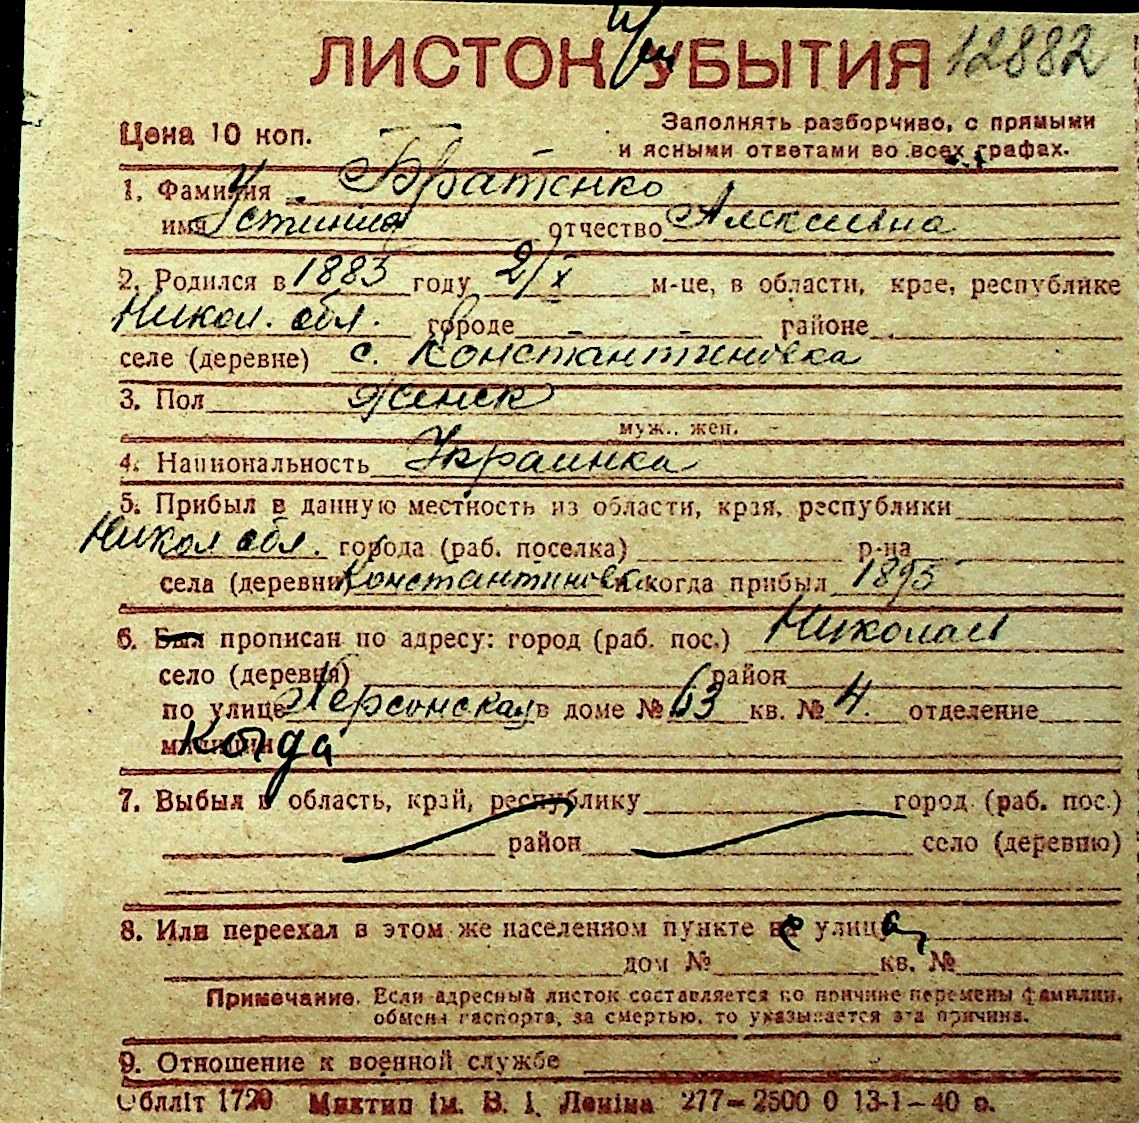 ЛИСТОК УБЫТИЯ 12882
Цена 10 коп.
Заполнять разборчиво, с прямыми
и ясными ответами во всех графах.
1. Фамилия Братенко
имя Устиния отчество Алексеевна
2. Родился в 1883 году 2/X м-це, в области, крае, республике
Никол. обл. городе - - районе
селе (деревне) с. Константиновка
3. Пол женск
муж., жен.
4. Национальность Украинка
5. Прибыл в данную местность из области, края, республики
Никол обл. города (раб. поселка) р-на
села (деревни) Константиновка и когда прибыл 1895
6. Был прописан по адресу: город (раб. пос.) Николаев
село (деревня) район
по улице Херсонская в доме № 63 кв. № 4. отделение
милиции Когда
7. Выбыл в область, край, республику город (раб. пос.)
район село (деревню)
8. Или переехал в этом же населенном пункте на улицу
дом № кв. №
Примечание. Если адресный листок составляется по причине перемены фамилии,
обмена паспорта, за смертью, то указывается эта причина.
9. Отношение к военной службе
Облліт 1720 Миктип ім. В. І. Леніна 277—2500 0 13-1-40 р.